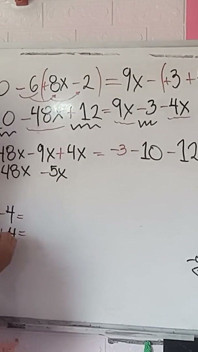 0 -6(+8x-2) = 9x-(+3+
10 -48x+12 = 9x-3-4x
48x-9x+4x = -3-10-12
48x -5x
-4=
+4=